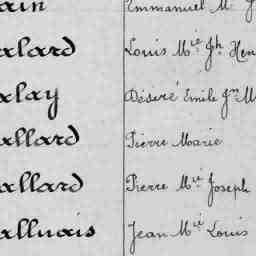 ain Emmanuel M
alard Louis Mie Jh Hen
alay Désiré Emile Jn M
allard Pierre Marie
allard Pierre Mie Joseph
alluais Jean Mie Louis